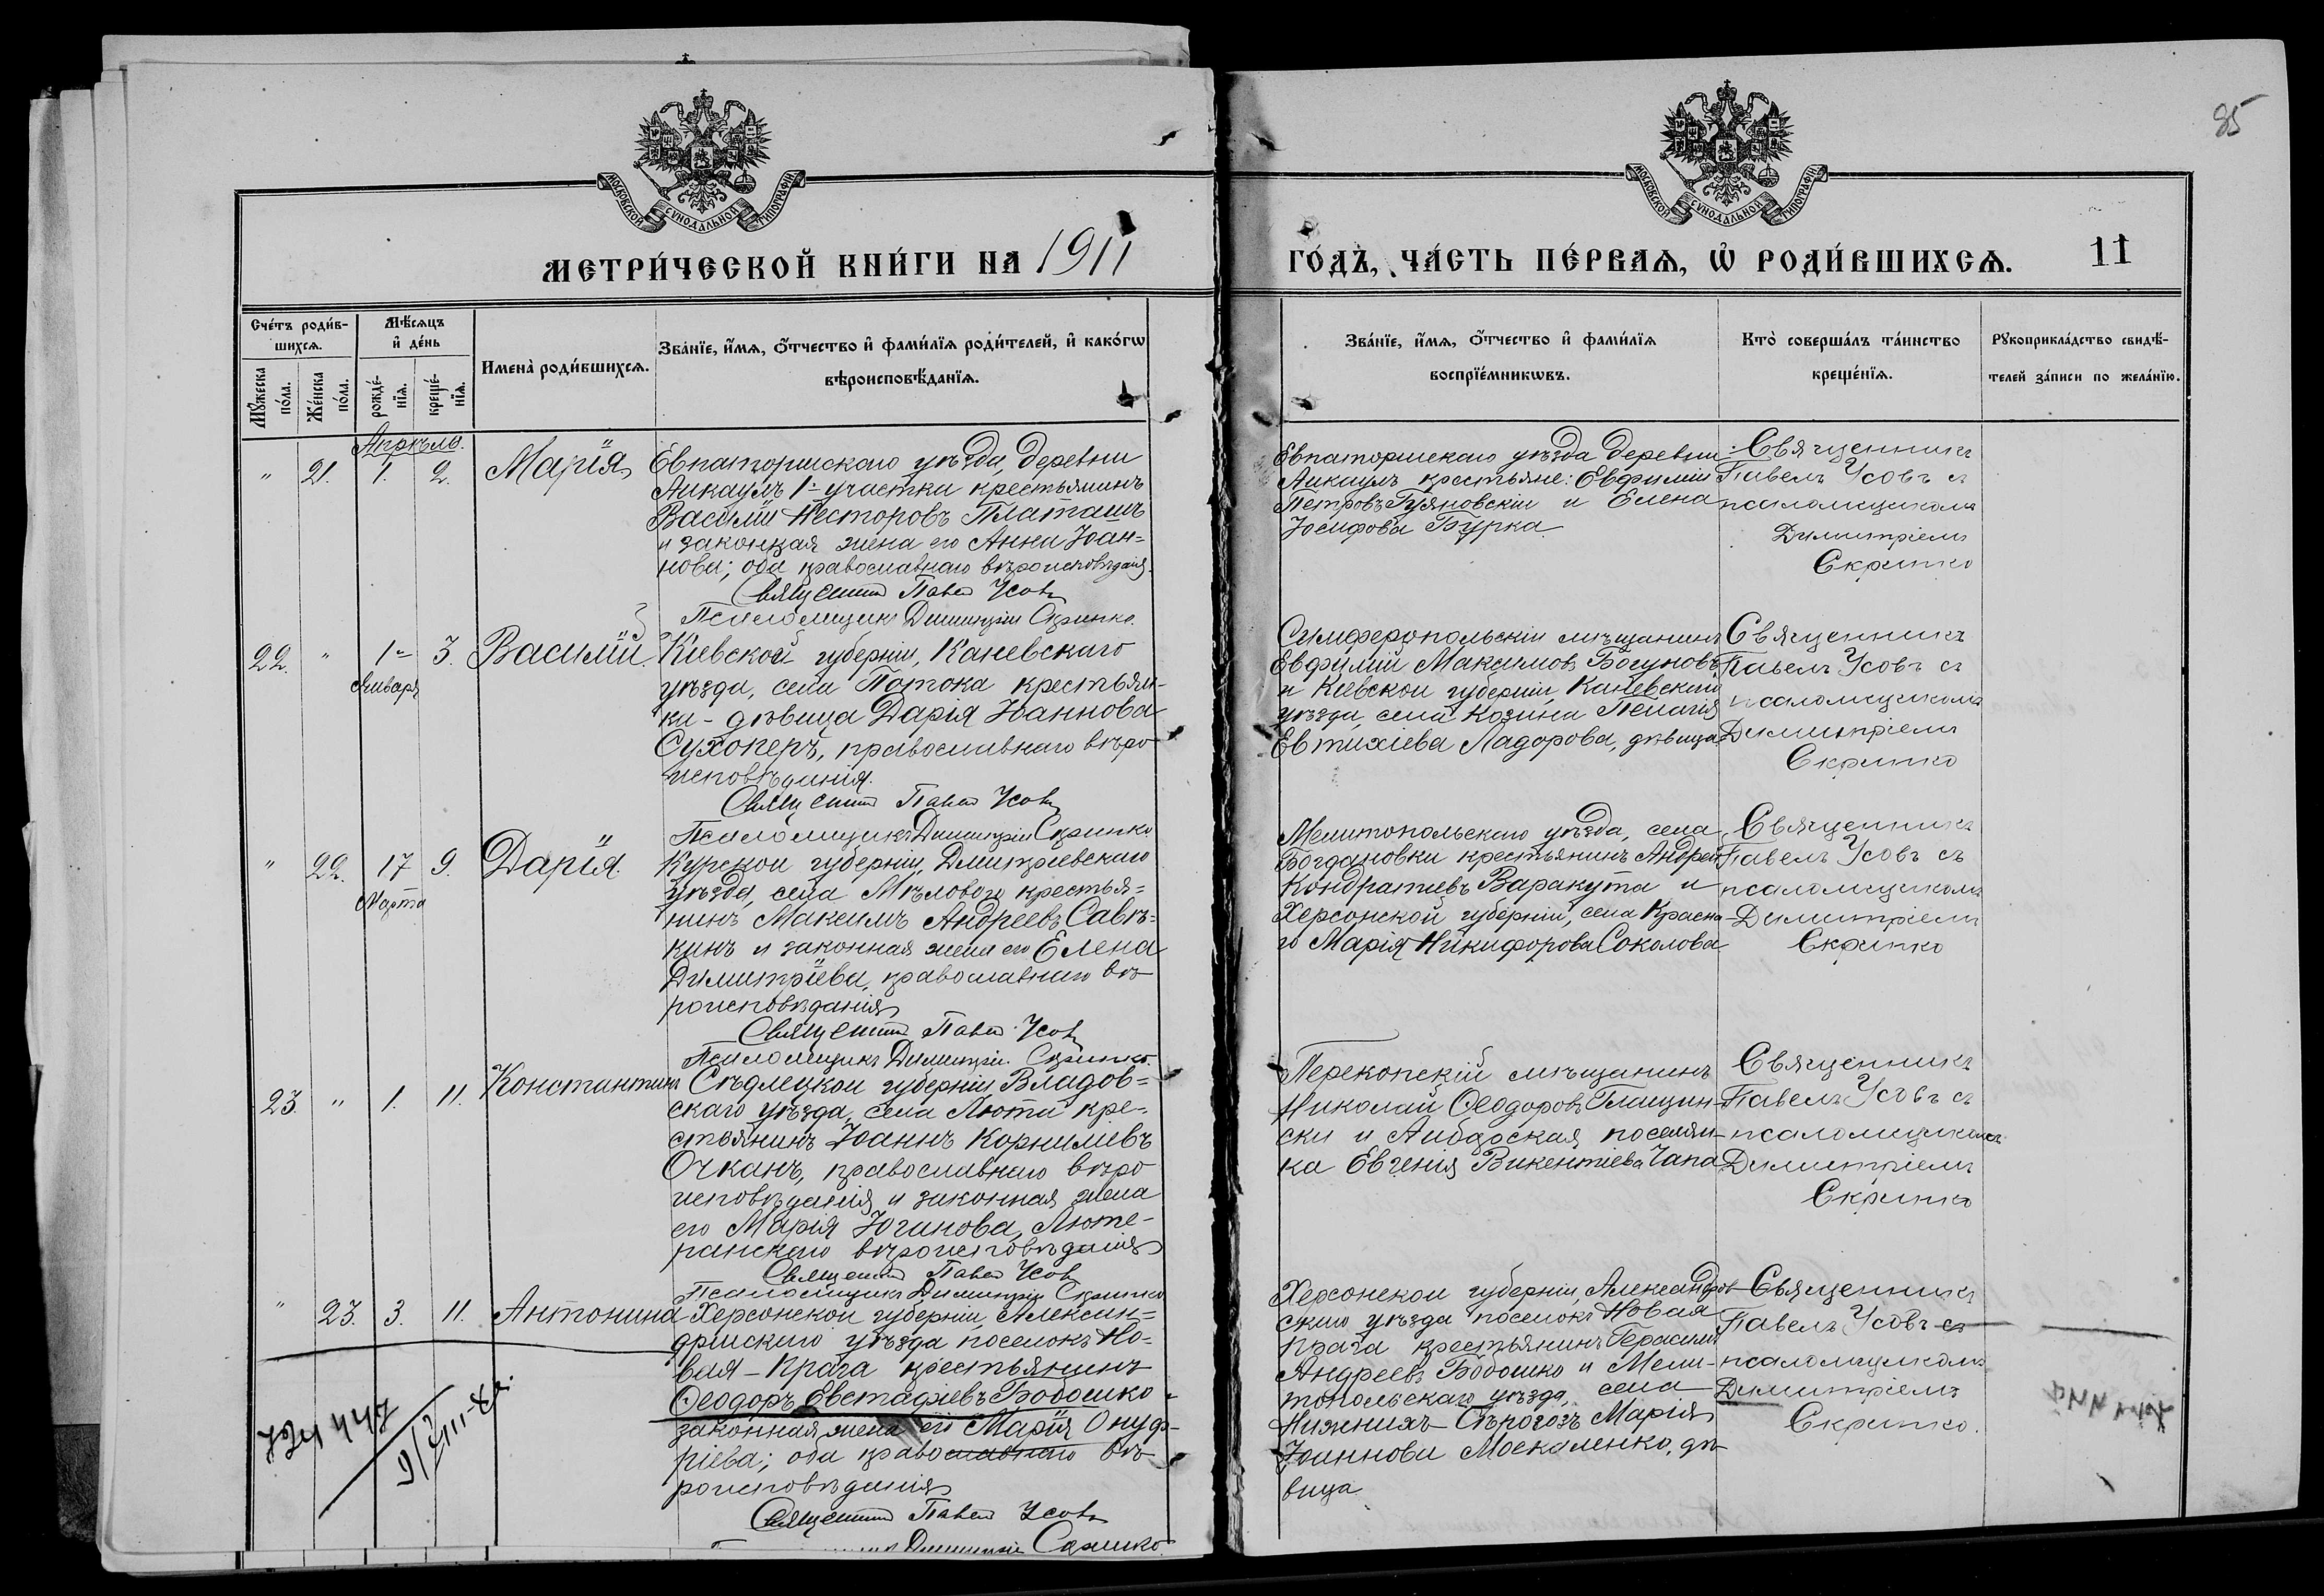 85
МОСКОВСКОЙ СѴНОДАЛЬНОЙ ТИПОГРАФІИ
МОСКОВСКОЙ СѴНОДАЛЬНОЙ ТИПОГРАФІИ
МЕТРИ́ЧЕСКОЙ КНИ́ГИ НА 1911
ГО́ДЪ, ЧА́СТЬ ПЕ́РВАѦ, Ѡ҆ РОДИ́ВШИХСѦ. 11
Сче́тъ роди́в-
шихсѧ.
Мꙋ́жеска
по́ла.
Же́нска
по́ла.
Мѣ́сѧцъ
и҆ де́нь
рожде́-
нїѧ.
креще́-
нїѧ.
Имена̀ роди́вшихсѧ.
Зва́нїе, и҆́мѧ, ѻ҆́тчество и҆ фами́лїѧ роди́телей, и҆ како́гѡ
вѣроисповѣ́данїѧ.
Зва́нїе, и҆́мѧ, ѻ҆́тчество и҆ фами́лїѧ
воспрїе́мникѡвъ.
Кто̀ соверша́лъ та́инство
креще́нїѧ.
Рꙋкоприкла́дство свидѣ́-
телей за́писи по жела́нїю.
Апрѣль.
" 21. 1. 2. Марія
Евпаторискаго уѣзда, деревни
Аикаулъ 1- участка крестьянинъ
Василій Несторовъ Платашъ
и законная жена его Анна Іоан=
нова; оба православнаго вѣроисповѣданія.
Священникъ Павелъ Усовъ
Псаломщикъ Димитрій Скрипко.
Евпаторискаго уѣзда деревни
Аикаулъ крестьяне: Евфимій
Петровъ Гуляновскій и Елена
Іосифова Бурка
Священникъ
Павелъ Усовъ съ
псаломщикомъ
Димитріемъ
Скрипко
22. " 1- 3. Василій.
Января
Кіевской губерніи, Каневскаго
уѣзда, села Потока крестьян-
ка - дѣвица Дарія Іоаннова
Сухоперъ, православнаго вѣро
исповѣданія.
Священникъ Павелъ Усовъ
Псаломщикъ Димитрій Скрипко
Симферопольскій мѣщанинъ
Евфимій Максимовъ Богуновъ
и Кіевской губерніи, Каневскаго
уѣзда, села Козина Пелагія
Евтихіева Ладорова, дѣвица
Священникъ
Павелъ Усовъ съ
псаломщикомъ
Димитріемъ
Скрипко
" 22. 17 9. Дарія.
Марта
Курской губерніи, Дмитріевскаго
уѣзда, села Мѣловаго крестья=
нинъ Максимъ Андреевъ Савѣ=
кинъ и законная жена его Елена
Димитріева, православнаго вѣ
роисповѣданія
Священникъ Павелъ Усовъ
Псаломщикъ Димитрій Скрипко.
Мелитопольскаго уѣзда, села
Богдановки крестьянинъ Андрей
Кондратіевъ Варакута и
Херсонской губерніи, села Красна
го Марія Никифорова Соколова
Священникъ
Павелъ Усовъ съ
псаломщикомъ
Димитріемъ
Скрипко
23. " 1. 11. Константинъ
Сѣдлецкой губерніи Владов=
скаго уѣзда, села Люта кре=
стьянинъ Іоаннъ Корниліевъ
Очканъ, православнаго вѣро
исповѣданія и законная жена
его Марія Юганова, Люте-
ранскаго вѣроисповѣданія
Священникъ Павелъ Усовъ
Псаломщикъ Димитрій Скрипко
Перекопскій мѣщанинъ
Николай Ѳеодоровъ Глащин-
ски и Аибарская поселян-
ка Евгенія Викентіева Чапа
Священникъ
Павелъ Усовъ съ
псаломщикомъ
Димитріемъ
Скрипко
" 23. 3. 11. Антонина
Херсонской губерніи, Алексан=
дрійскаго уѣзда поселокъ Но=
вая-Прага крестьянинъ
Ѳеодоръ Евстафіевъ Бодошко
законная жена его Марія Онуф-
ріева; оба православнаго вѣ-
роисповѣданія
Священникъ Павелъ Усовъ
Димитрій Скрипко
Херсонской губерніи, Александрій
скаго уѣзда поселокъ Новая
Прага крестьянинъ Герасимъ
Андреевъ Бодошко и Мели-
топольскаго уѣзда, села
Нижнихъ-Сѣрогозъ Марія
Іоаннова Москаленко, дѣ-
вица
Священникъ
Павелъ Усовъ съ
псаломщикомъ
Димитріемъ
Скрипко.